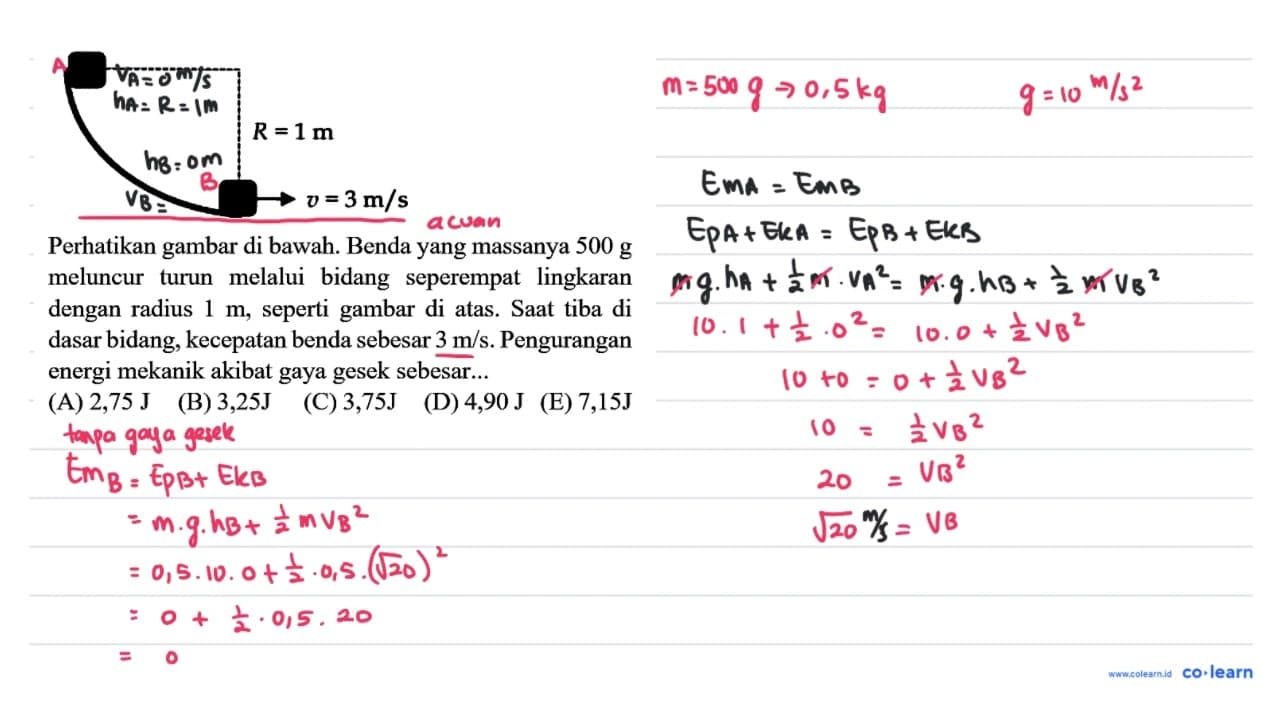 A
VA = 0 m/s
hA = R = 1 m
R = 1 m
hB = 0 m
B
VB =
v = 3 m/s
acuan
Perhatikan gambar di bawah. Benda yang massanya 500 g
meluncur turun melalui bidang seperempat lingkaran
dengan radius 1 m, seperti gambar di atas. Saat tiba di
dasar bidang, kecepatan benda sebesar 3 m/s. Pengurangan
energi mekanik akibat gaya gesek sebesar...
(A) 2,75 J (B) 3,25J (C) 3,75J (D) 4,90 J (E) 7,15J
tanpa gaya gesek
EmB = EpB + EkB
= m.g.hB + 1/2 m VB²
= 0,5.10.0 + 1/2 . 0,5 . (√20)²
= 0 + 1/2 . 0,5 . 20
= 0
m = 500 g → 0,5 kg
g = 10 m/s²
EmA = EmB
EpA + EkA = EpB + EkB
m g.hA + 1/2 m . VA² = m.g.hB + 1/2 m VB²
10.1 + 1/2 . 0² = 10.0 + 1/2 VB²
10 + 0 = 0 + 1/2 VB²
10 = 1/2 VB²
20 = VB²
√20 m/s = VB
www.colearn.id co·learn